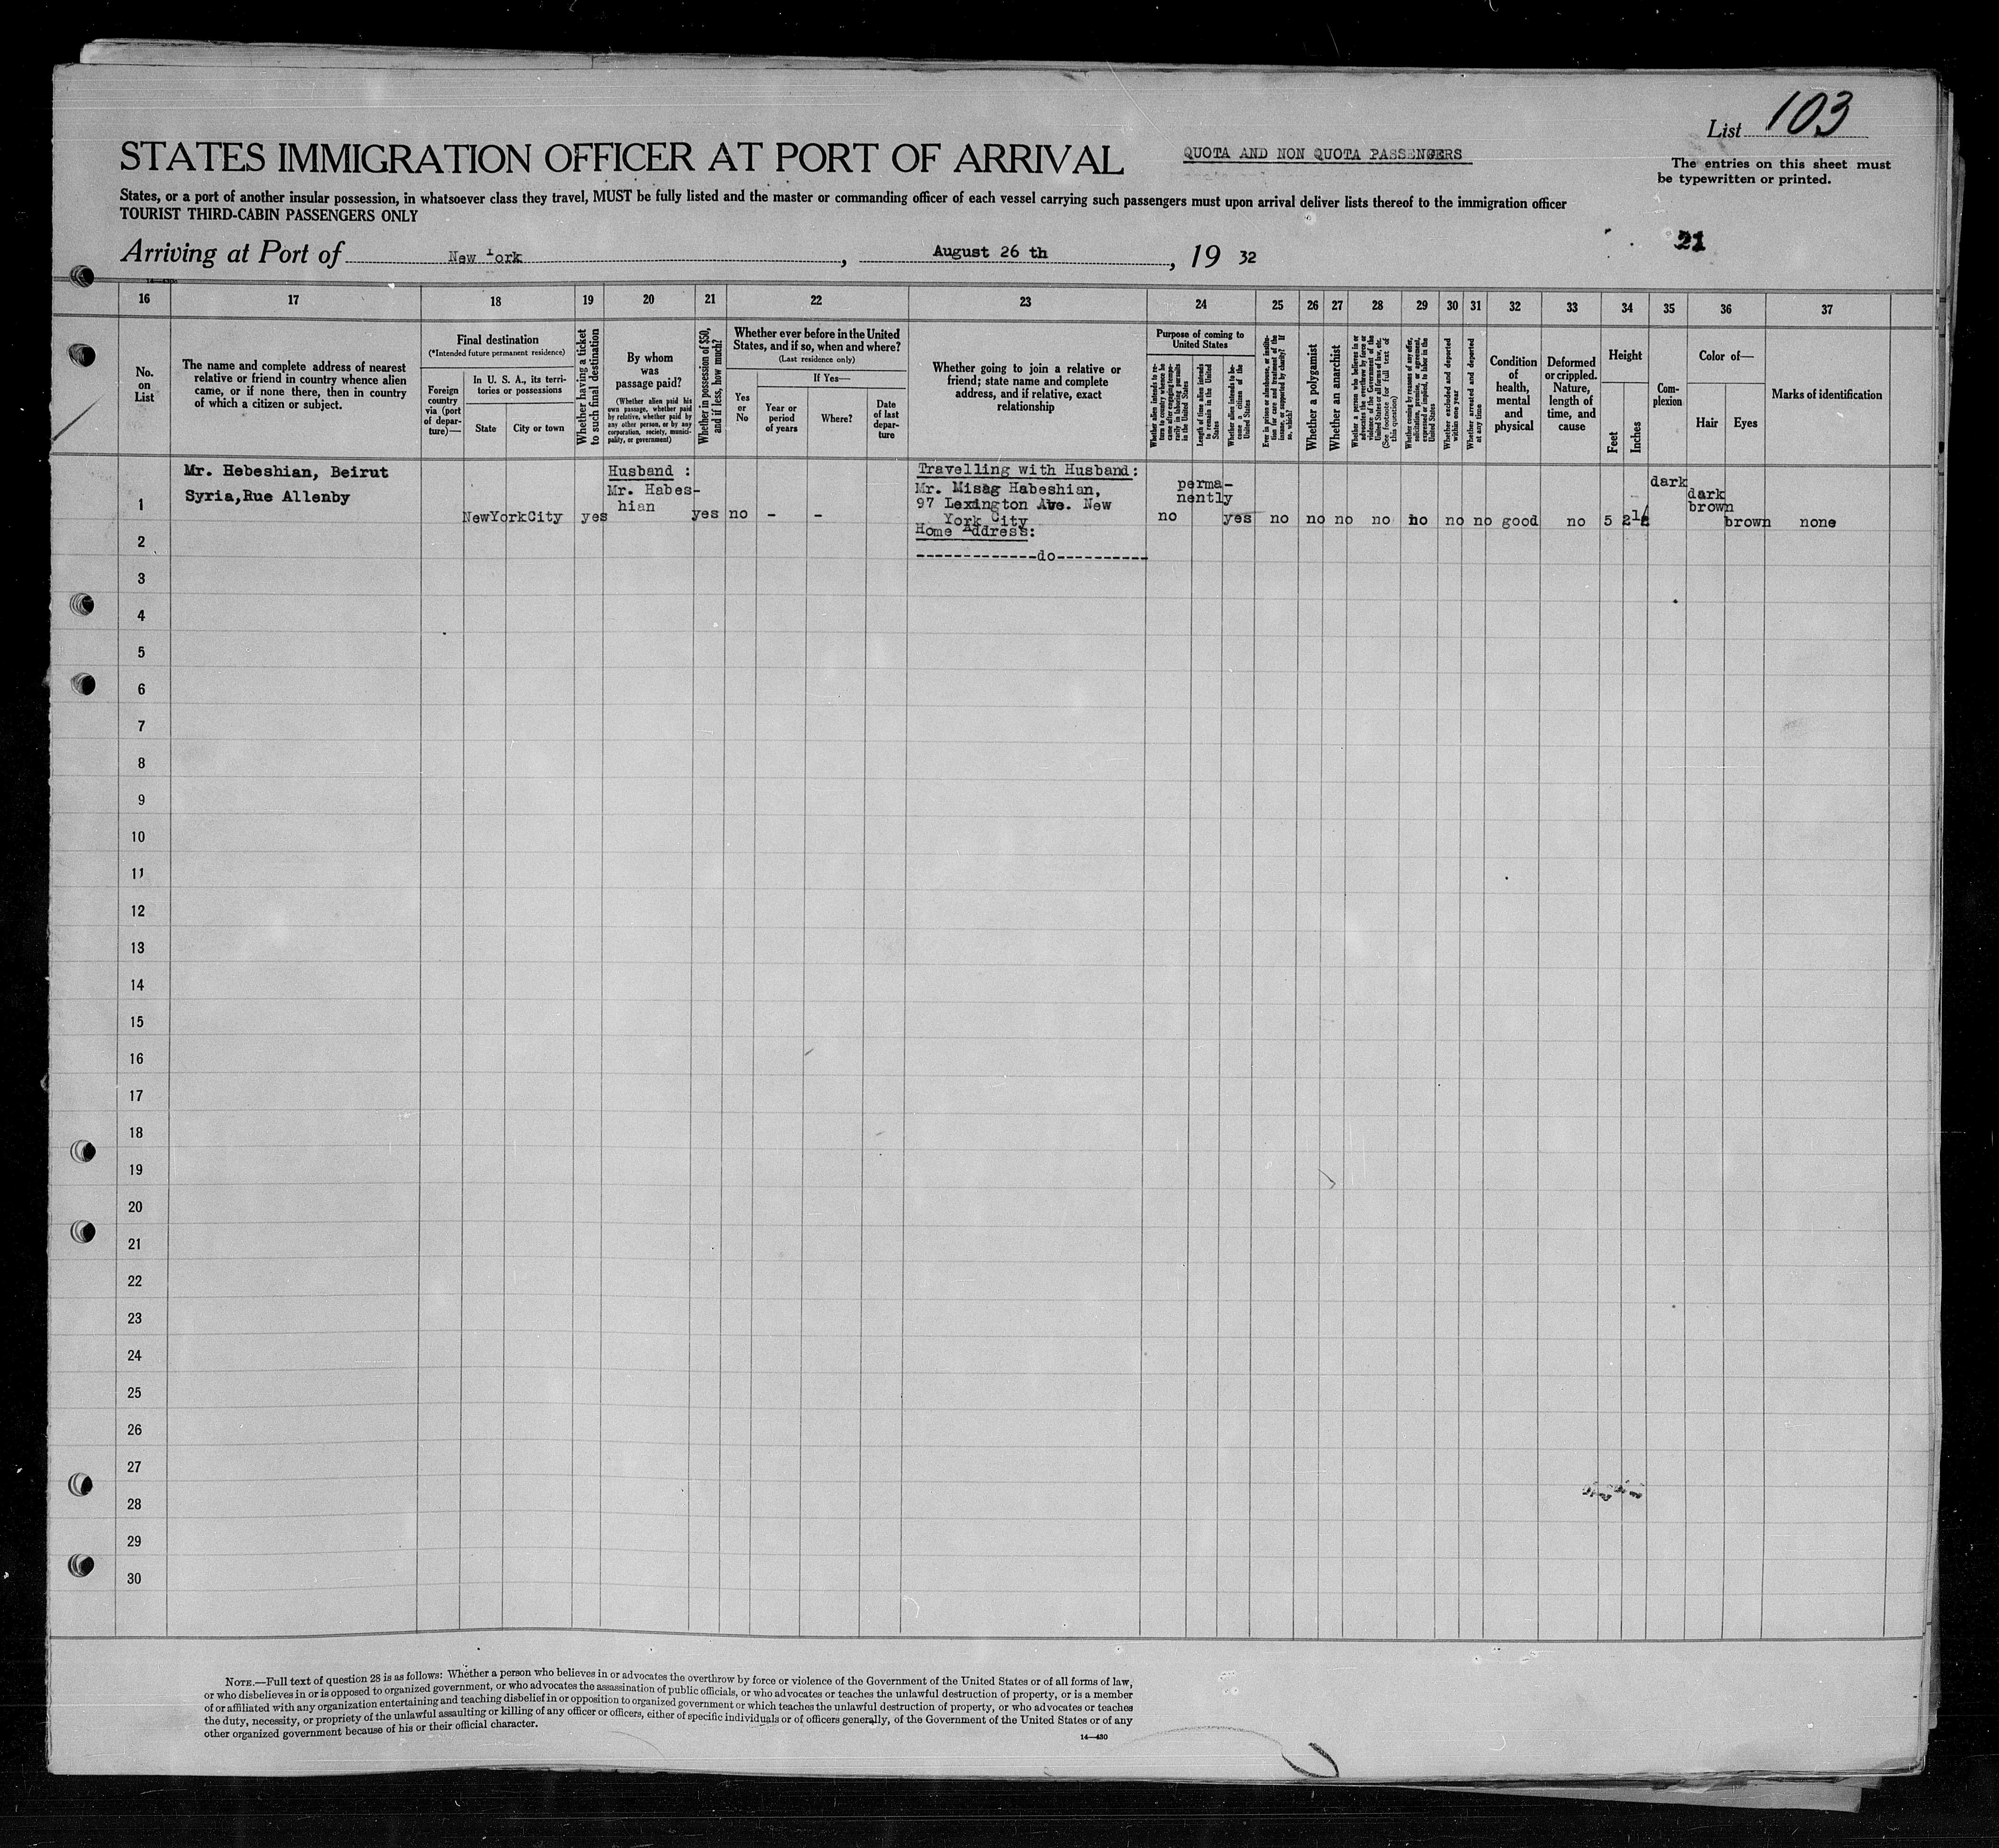 List 103
STATES IMMIGRATION OFFICER AT PORT OF ARRIVAL
QUOTA AND NON QUOTA PASSENGERS
The entries on this sheet must
be typewritten or printed.
States, or a port of another insular possession, in whatsoever class they travel, MUST be fully listed and the master or commanding officer of each vessel carrying such passengers must upon arrival deliver lists thereof to the immigration officer
TOURIST THIRD-CABIN PASSENGERS ONLY
21
Arriving at Port of New York, August 26 th, 19 32
16 17 18 19 20 21 22 23 24 25 26 27 28 29 30 31 32 33 34 35 36 37
No.
on
List
The name and complete address of nearest
relative or friend in country whence alien
came, or if none there, then in country
of which a citizen or subject.
Final destination
(*Intended future permanent residence)
Foreign
country
via (port
of depar-
ture)—
In U. S. A., its terri-
tories or possessions
State
City or town
Whether having a ticket
to such final destination
By whom
was
passage paid?
(Whether alien paid his
own passage, whether paid
by relative, whether paid by
any other person, or by any
corporation, society, munici-
pality, or government)
Whether in possession of $50,
and if less, how much?
Whether ever before in the United
States, and if so, when and where?
(Last residence only)
Yes
or
No
If Yes—
Year or
period
of years
Where?
Date
of last
depar-
ture
Whether going to join a relative or
friend; state name and complete
address, and if relative, exact
relationship
Purpose of coming to
United States
Whether alien intends to re-
turn to country whence he
came after engaging tempo-
rarily in laboring pursuits
in the United States
Length of time alien intends
to remain in the United
States
Whether alien intends to be-
come a citizen of the
United States
Ever in prison or almshouse, or institu-
tion for care and treatment of the
insane, or supported by charity? If
so, which?
Whether a polygamist
Whether an anarchist
Whether a person who believes in or
advocates the overthrow by force or
violence of the Government of the
United States or all forms of law, etc.
(See footnote for full text of
this question)
Whether coming by reasons of any offer,
solicitation, promise, or agreement,
expressed or implied, to labor in the
United States
Whether excluded and deported
within one year
Whether arrested and deported
at any time
Condition
of
health,
mental
and
physical
Deformed
or crippled.
Nature,
length of
time, and
cause
Height
Feet
Inches
Com-
plexion
Color of—
Hair
Eyes
Marks of identification
1
Mr. Hebeshian, Beirut
Syria,Rue Allenby
NewYorkCity
yes
Husband :
Mr. Habes-
hian
yes
no - -
Travelling with Husband:
Mr. Misag Habeshian,
97 Lexington Ave. New
York City
Home Address:
-------------do----------
no
perma-
nently
yes no no no no no no no good no 5 2½
dark
dark
brown
brown
none
2
3
4
5
6
7
8
9
10
11
12
13
14
15
16
17
18
19
20
21
22
23
24
25
26
27
28
29
30
NOTE.—Full text of question 28 is as follows: Whether a person who believes in or advocates the overthrow by force or violence of the Government of the United States or of all forms of law,
or who disbelieves in or is opposed to organized government, or who advocates the assassination of public officials, or who advocates or teaches the unlawful destruction of property, or is a member
of or affiliated with any organization entertaining and teaching disbelief in or opposition to organized government or which teaches the unlawful destruction of property, or who advocates or teaches
the duty, necessity, or propriety of the unlawful assaulting or killing of any officer or officers, either of specific individuals or of officers generally, of the Government of the United States or of any
other organized government because of his or their official character.
14—430